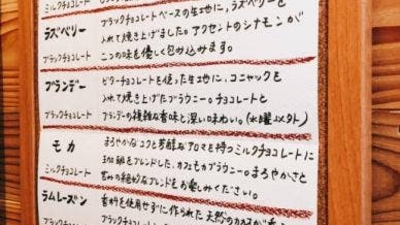 ミルクチョコレート
ラズベリー
ブラックチョコレートベースの生地に、ラズベリーを
入れて焼き上げました。アクセントのシナモンが
ブラックチョコレート
二つの味を優しく包み込みます。
ブランデー
ビターチョコレートを使った生地に、コニャックを
入れて焼き上げたブラウニー。チョコレートと
ブラックチョコレート
ブランデーの複雑な香味と深い味わい。(水曜以外)
モカ
まろやかなコクと芳醇なアロマを持つミルクチョコレートに
をブレンドした、カフェモカブラウニー。まろやかさと
ミルクチョコレート
苦みの絶妙なブレンドをお楽しみください。
ラムレーズン
香料を使用せずに作られた天然のカカオが
ブラックチョコレート